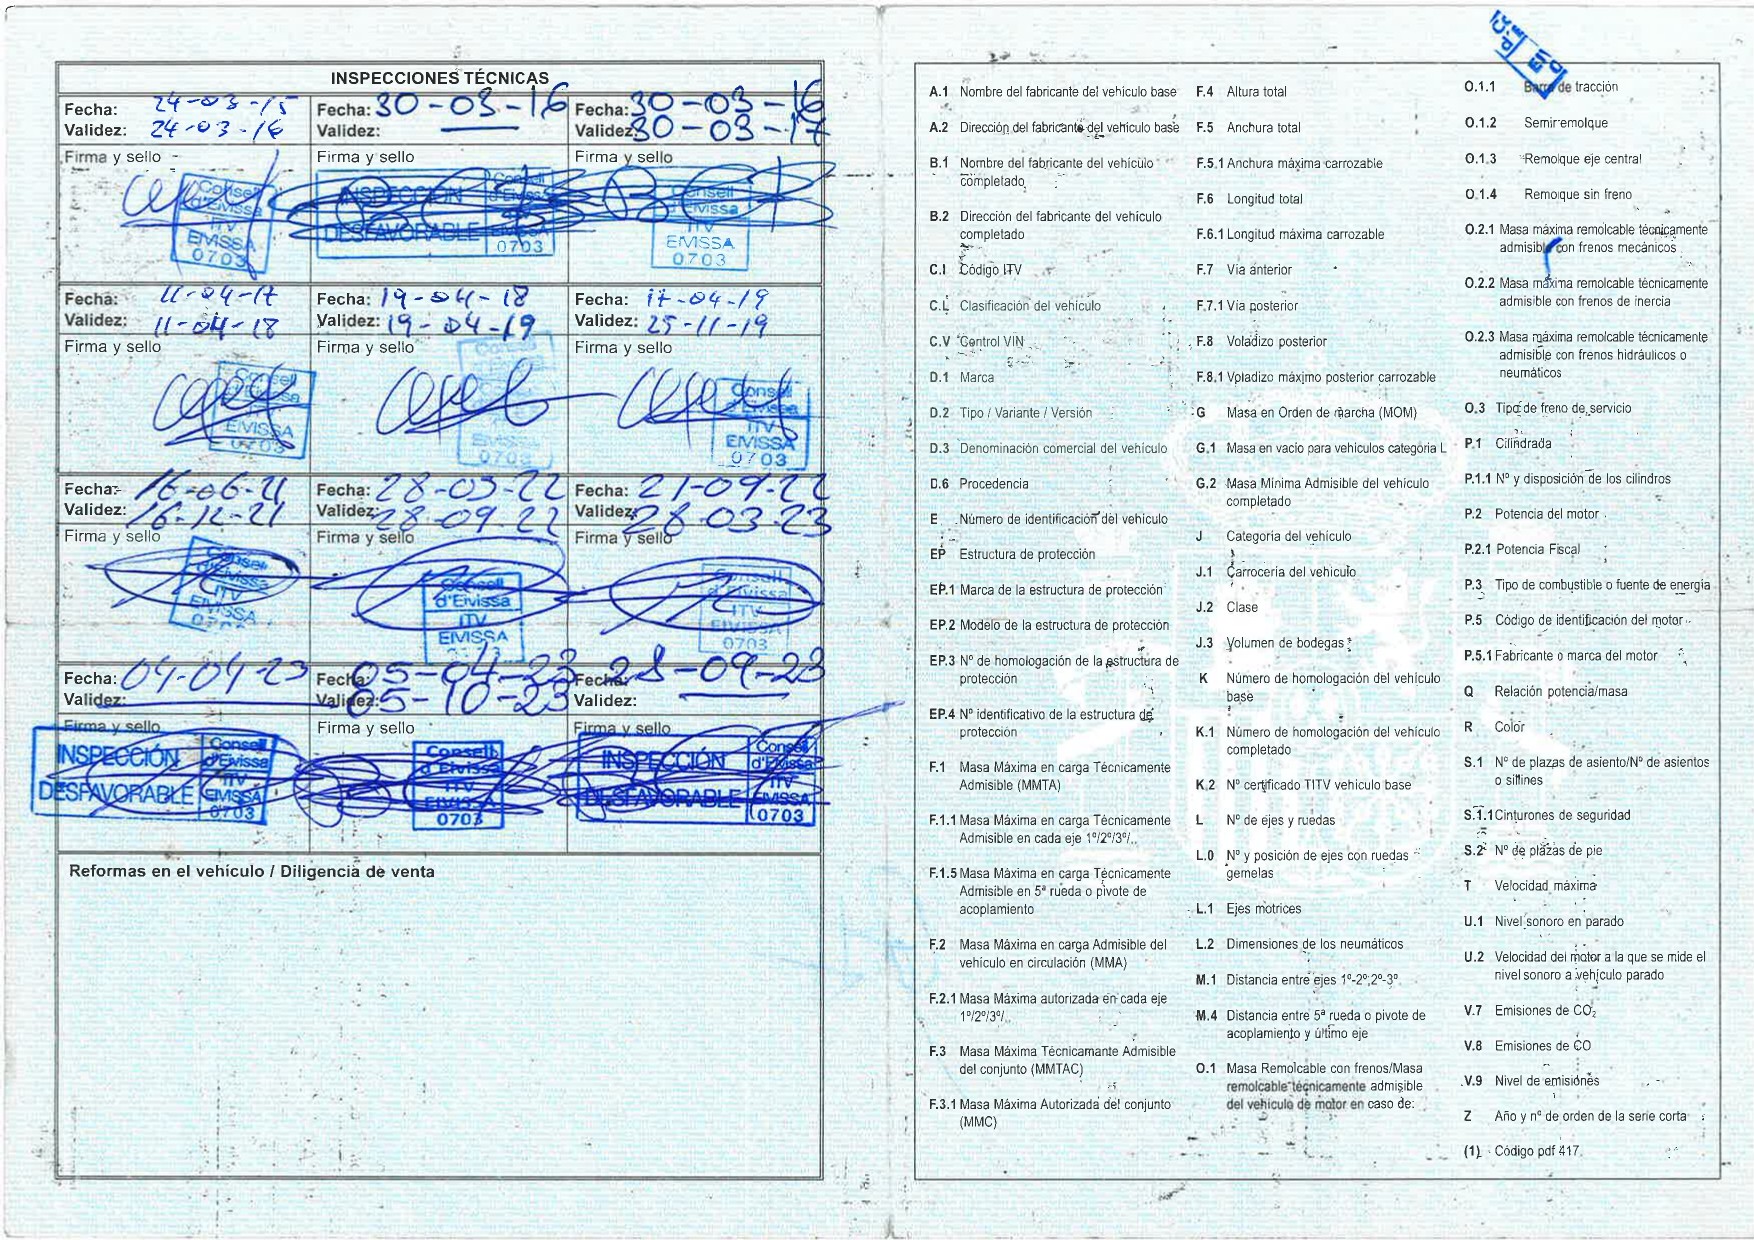 INSPECCIONES TÉCNICAS
Fecha: 24-03-15
Validez: 24-03-16
Firma y sello
Consell
d'Eivissa
ITV
EIVISSA
0703
Fecha: 30-03-16
Validez:
Firma y sello
INSPECCIÓN
DESFAVORABLE
Consell
d'Eivissa
EIVISSA
0703
Fecha: 30-03-16
Validez: 30-03-17
Firma y sello
Consell
d'Eivissa
ITV
EIVISSA
0703
Fecha: 11-04-17
Validez: 11-04-18
Firma y sello
Consell
d'Eivissa
EIVISSA
0703
Fecha: 19-04-18
Validez: 19-04-19
Firma y sello
0703
Fecha: 17-04-19
Validez: 25-11-19
Firma y sello
Consell
d'Eivissa
ITV
EIVISSA
0703
Fecha: 16-06-21
Validez: 16-12-21
Firma y sello
Consell
d'Eivissa
ITV
EIVISSA
0703
Fecha: 28-03-22
Validez: 28-09-22
Firma y sello
Consell
d'Eivissa
ITV
EIVISSA
Fecha: 21-09-22
Validez: 28-03-23
Firma y sello
Consell
d'Eivissa
ITV
EIVISSA
0703
Fecha: 04-04-23
Validez:
Firma y sello
INSPECCIÓN
DESFAVORABLE
Consell
d'Eivissa
ITV
EIVISSA
0703
Fecha: 05-04-23
Validez: 05-10-23
Firma y sello
Consell
d'Eivissa
ITV
EIVISSA
0703
Fecha: 28-09-23
Validez:
Firma y sello
INSPECCIÓN
DESFAVORABLE
Consell
d'Eivissa
ITV
EIVISSA
0703
Reformas en el vehículo / Diligencia de venta
A.1 Nombre del fabricante del vehículo base
A.2 Dirección del fabricante del vehículo base
B.1 Nombre del fabricante del vehículo
completado
B.2 Dirección del fabricante del vehículo
completado
C.I Código ITV
C.L Clasificación del vehículo
C.V Control VIN
D.1 Marca
D.2 Tipo / Variante / Versión
D.3 Denominación comercial del vehículo
D.6 Procedencia
E Número de identificación del vehículo
EP Estructura de protección
EP.1 Marca de la estructura de protección
EP.2 Modelo de la estructura de protección
EP.3 Nº de homologación de la estructura de
protección
EP.4 Nº identificativo de la estructura de
protección
F.1 Masa Máxima en carga Técnicamente
Admisible (MMTA)
F.1.1 Masa Máxima en carga Técnicamente
Admisible en cada eje 1º/2º/3º/..
F.1.5 Masa Máxima en carga Técnicamente
Admisible en 5ª rueda o pivote de
acoplamiento
F.2 Masa Máxima en carga Admisible del
vehículo en circulación (MMA)
F.2.1 Masa Máxima autorizada en cada eje
1º/2º/3º/..
F.3 Masa Máxima Técnicamante Admisible
del conjunto (MMTAC)
F.3.1 Masa Máxima Autorizada del conjunto
(MMC)
F.4 Altura total
F.5 Anchura total
F.5.1 Anchura máxima carrozable
F.6 Longitud total
F.6.1 Longitud máxima carrozable
F.7 Vía anterior
F.7.1 Vía posterior
F.8 Voladizo posterior
F.8.1 Voladizo máximo posterior carrozable
G Masa en Orden de marcha (MOM)
G.1 Masa en vacío para vehículos categoría L
G.2 Masa Mínima Admisible del vehículo
completado
J Categoría del vehículo
J.1 Carrocería del vehículo
J.2 Clase
J.3 Volumen de bodegas
K Número de homologación del vehículo
base
K.1 Número de homologación del vehículo
completado
K.2 Nº certificado TITV vehículo base
L Nº de ejes y ruedas
L.0 Nº y posición de ejes con ruedas
gemelas
L.1 Ejes motrices
L.2 Dimensiones de los neumáticos
M.1 Distancia entre ejes 1º-2º,2º-3º.
M.4 Distancia entre 5ª rueda o pivote de
acoplamiento y último eje
O.1 Masa Remolcable con frenos/Masa
remolcable técnicamente admisible
del vehículo de motor en caso de:
O.1.1 Barra de tracción
O.1.2 Semirremolque
O.1.3 Remolque eje central
O.1.4 Remolque sin freno
O.2.1 Masa máxima remolcable técnicamente
admisible con frenos mecánicos
O.2.2 Masa máxima remolcable técnicamente
admisible con frenos de inercia
O.2.3 Masa máxima remolcable técnicamente
admisible con frenos hidráulicos o
neumáticos
O.3 Tipo de freno de servicio
P.1 Cilindrada
P.1.1 Nº y disposición de los cilindros
P.2 Potencia del motor
P.2.1 Potencia Fiscal
P.3 Tipo de combustible o fuente de energía
P.5 Código de identificación del motor
P.5.1 Fabricante o marca del motor
Q Relación potencia/masa
R Color
S.1 Nº de plazas de asiento/Nº de asientos
o sillines
S.1.1 Cinturones de seguridad
S.2 Nº de plazas de pie
T Velocidad máxima
U.1 Nivel sonoro en parado
U.2 Velocidad del motor a la que se mide el
nivel sonoro a vehículo parado
V.7 Emisiones de CO₂
V.8 Emisiones de CO
V.9 Nivel de emisiones
Z Año y nº de orden de la serie corta
(1) Código pdf 417